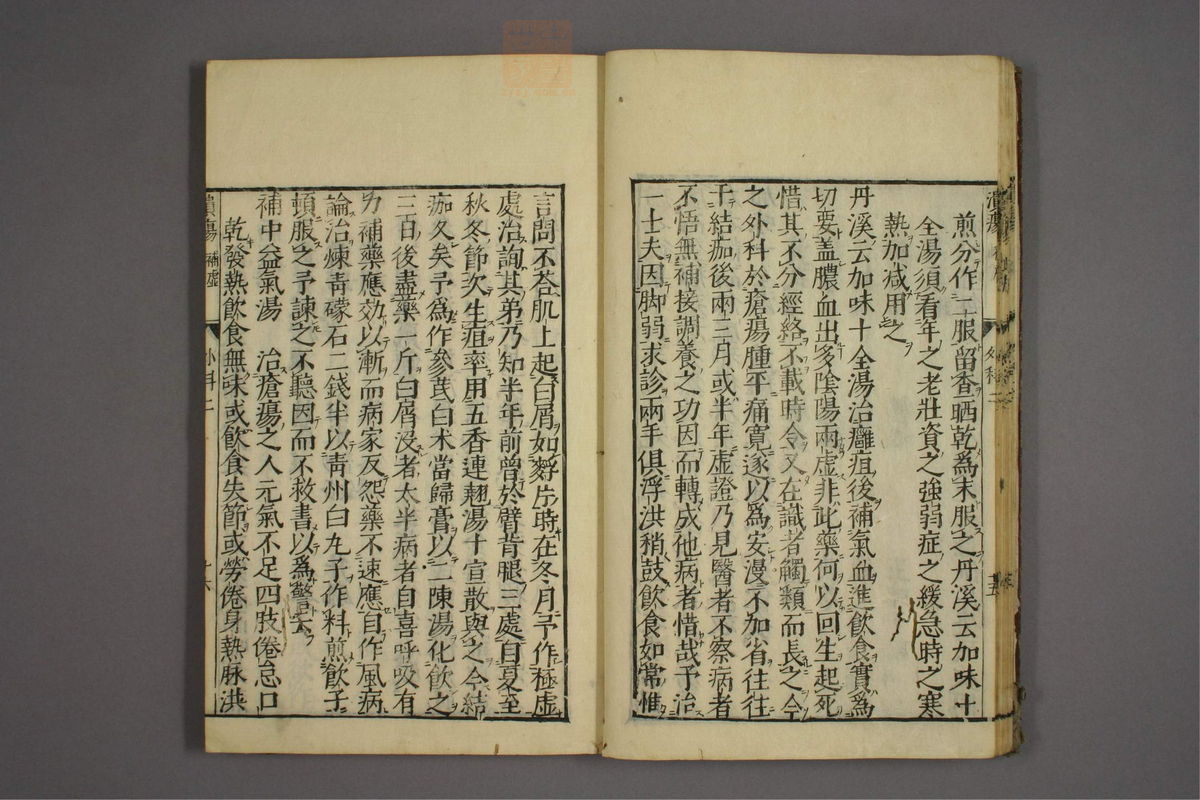 煎分作二服留查晒乾為末服之丹溪云加味十
全湯須看年之老壯資之強弱症之緩急時之寒
熱加减用之
丹溪云加味十全湯治癰疽後補氣血進飲食實為
切要盖膿血出多陰陽兩虛非此藥何以回生起死
惜其不分經絡不載時令又在識者觸類而長之今
之外科於瘡瘍腫平痛寛遂以為安漫不加省往往
于結痂後兩三月或半年虛證乃見醫者不察病者
不悟無補接調養之功因而轉成他病者惜哉予治
一士夫因脚弱求診兩手俱浮洪稍鼓飲食如常惟
言問不荅肌上起白屑如麩片時在冬月予作極虛
處治詢其弟乃知半年前曾於臂背腿三處自夏至
秋冬節次生疽率用五香連翹湯十宣散與之今結
痂久矣予為作參茋白术當歸膏以二陳湯化飲之
三日後盡藥一斤白屑没者太半病者自喜呼吸有
力補藥應効以漸而病家反怨藥不速應自作風病
論治煉青礞石二錢半以青州白丸子作料煎飲子
頓服之予諫之不聽因而不救書以為警云
補中益氣湯　治瘡瘍之人元氣不足四肢倦怠口
乾發熱飲食無味或飲食失節或勞倦身熱脉洪
潰瘍 補虛
外科二
十六